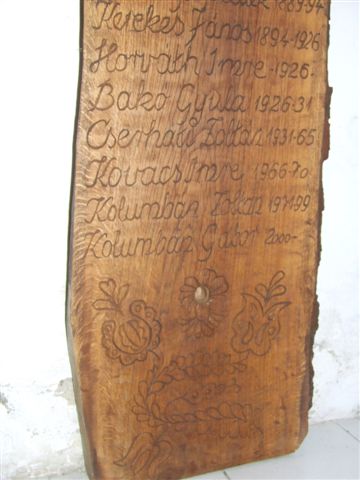 1889-94
Kerekes János 1894-1926
Horváth Imre -1926-
Bakó Gyula 1926-31
Cserhati Zoltán 1931-65
Kovacs Imre 1966-70
Kolumbán Zoltán 1971-99
Kolumbán Gábor 2000-